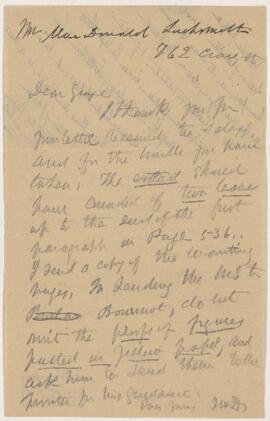 Mr MacDonald
762 Craig St
Dear George
I thank you for
your letter received
and for the trouble you have
taken, The extract should
have consisted of two leaves
up to the end of the first
paragraph in Page 536.,
I send a copy of the wanting
pages, In sending the MSS
Bournot, do not
omit the proofs of figures
pasted in yellow paper, and
ask him to send them to the
printer for his guidance.